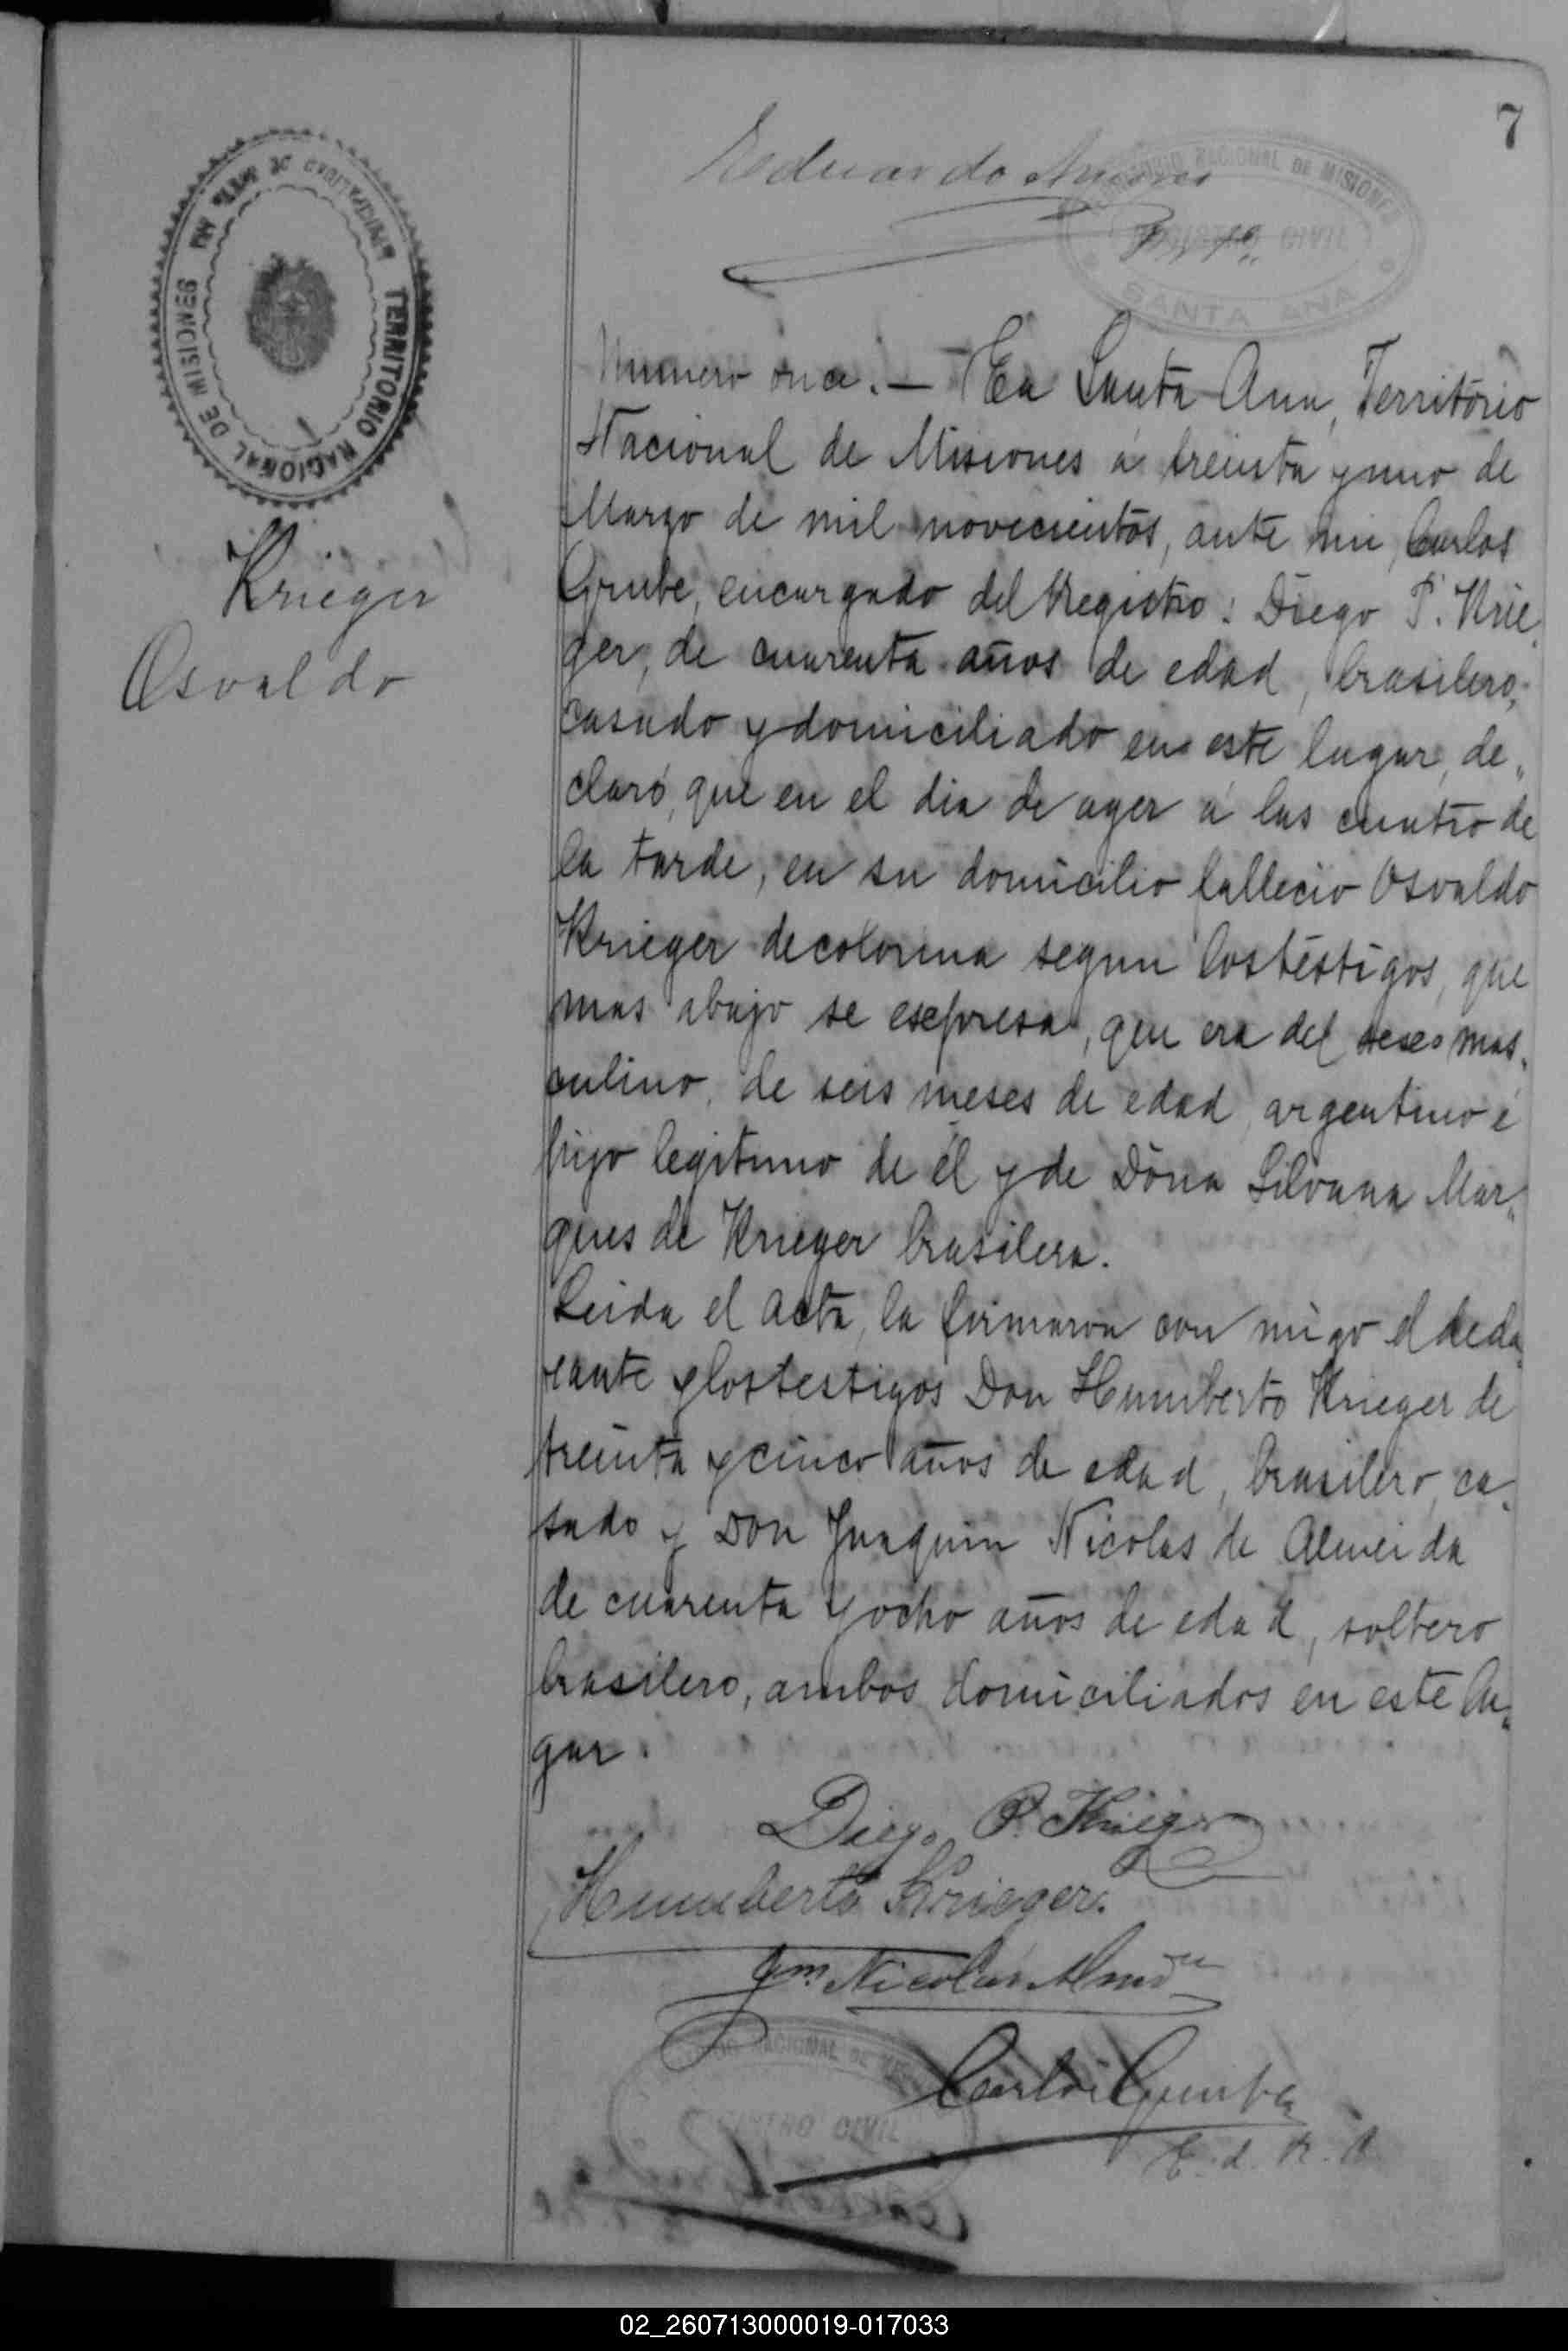 7
Eduardo
TERRITORIO NACIONAL DE MISIONES
REGISTRO CIVIL
SANTA ANA
TERRITORIO NACIONAL DE MISIONES
Krieger
Osvaldo
Numero once. — En Santa Ana, Territorio
Nacional de Misiones á treinta y uno de
Marzo de mil novecientos, ante mi, Carlos
Grube, encargado del Registro: Diego P. Krie„
ger, de cuarenta años de edad, brasilero,
casado y domiciliado en este lugar, de„
claró, que en el dia de ayer á las cuatro de
la tarde, en su domicilio fallecio Osvaldo
Krieger de colorina segun los testigos, que
mas abajo se esepresa, que era del sexo mas„
culino, de seis meses de edad, argentino é
hijo legitimo de él y de Dòna Silvana Mar„
ques de Krieger brasilera.
Leida el acta, la firmaron con migo el decla„
rante y los testigos Don Humberto Krieger de
treinta y cinco años de edad, brasilero, ca„
sado y Don Juaquin Nicolas de Almeida
de cuarenta y ocho años de edad, soltero
brasilero, ambos domiciliados en este lu„
gar.
Diego P. Krieger
Humberto Krieger.
Jm. Nicolas
NACIONAL DE
REGISTRO CIVIL
Carlos Grube
E. d. R. C.
02_260713000019-017033